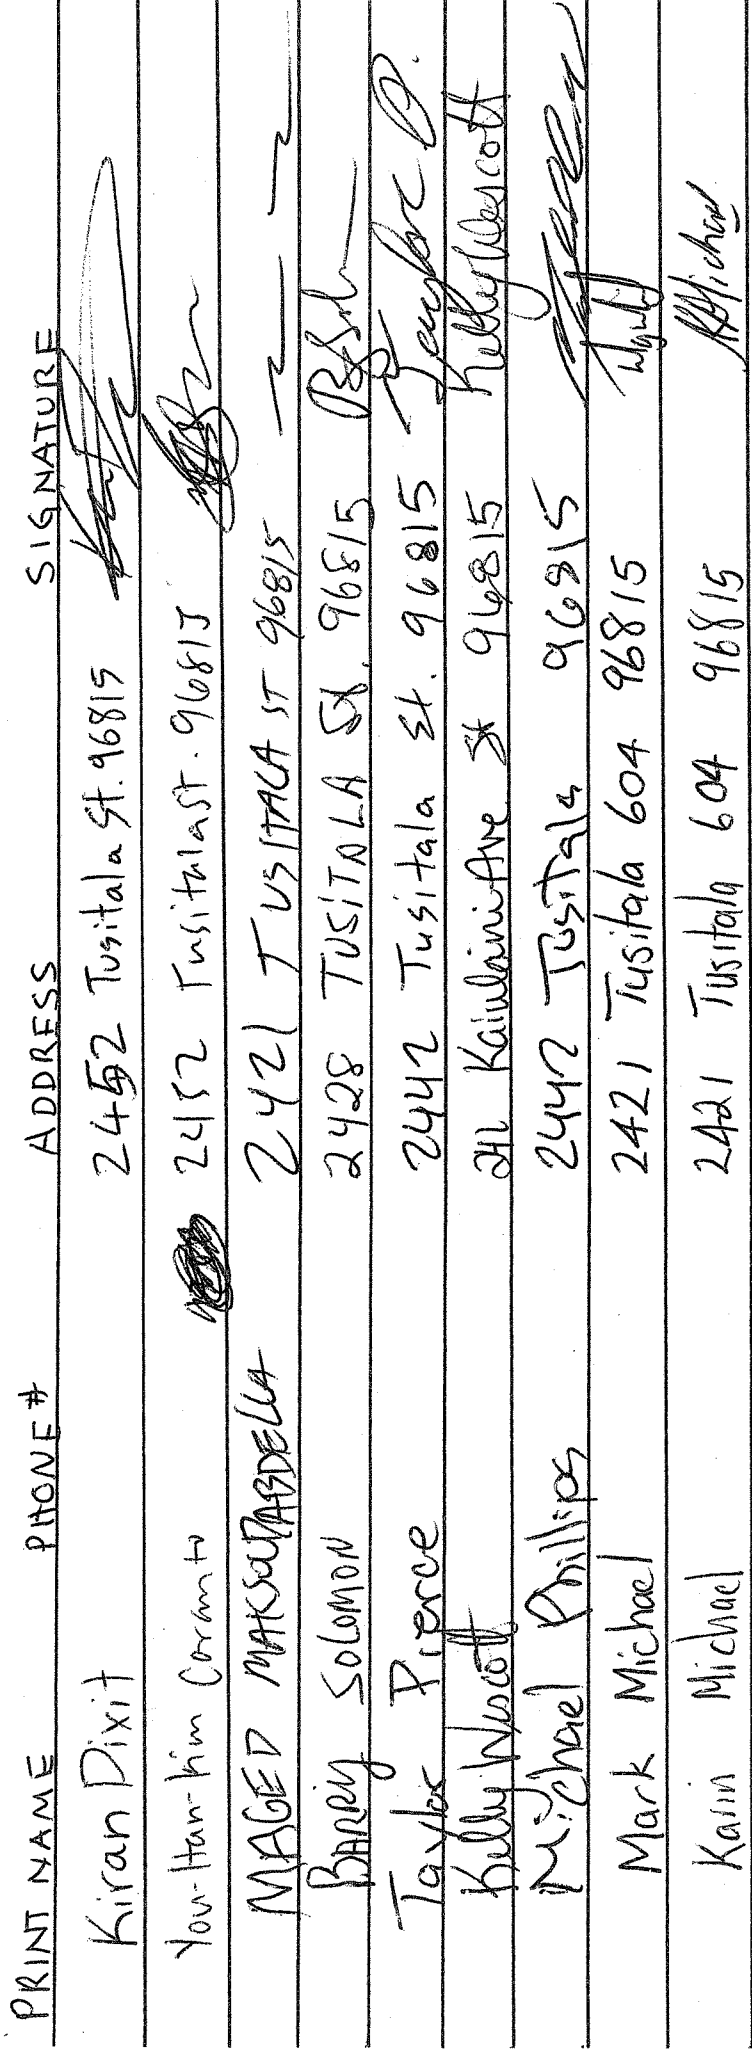 PRINT NAME PHONE # ADDRESS SIGNATURE
Kiran Dixit 2452 Tusitala St. 96815
You-Han-Kim Coranto 2452 Tusitala st. 96815
MAGED MAKSOUD ABDELLA 2421 TUSITALA ST 96815
BARRY SOLOMON 2428 TUSITALA St. 96815
Taylor Pierce 2442 Tusitala st. 96815 Taylor P.
Kelly Wescott Kaiulani Ave St 96815 Kelly Wescott
Michael Phillips 2442 Tusitala 96815
Mark Michael 2421 Tusitala 604 96815
Karin Michael 2421 Tusitala 604 96815 K Michael